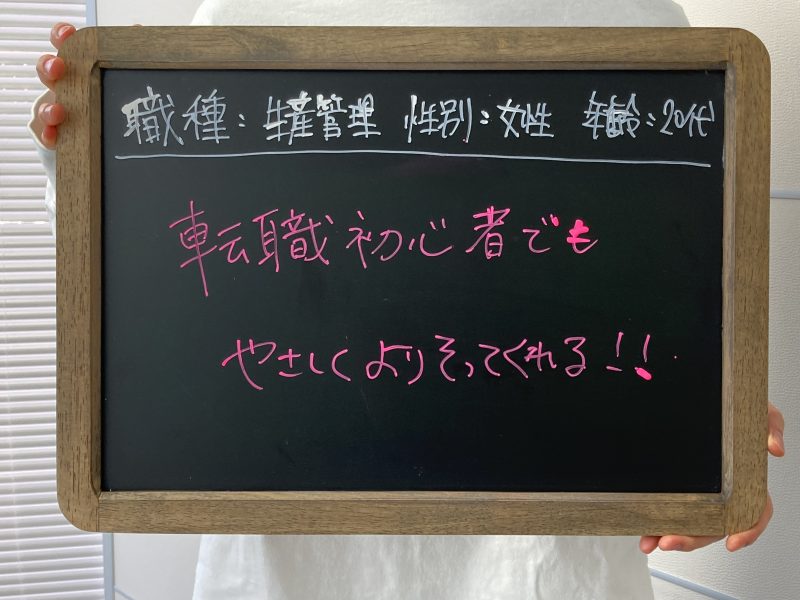 職種：生産管理 性別：女性 年齢：20代
転職初心者でも
やさしくよりそってくれる！！